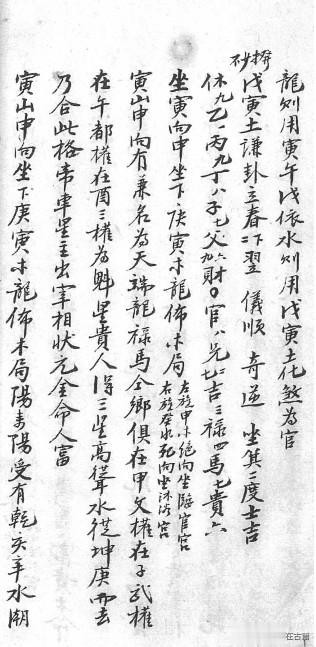 龍則用寅午戊依水則用戊寅土化煞為官
撥砂
戊寅土謙卦立春二下翌 儀順 奇逆 坐箕三度土吉
休九乙一丙九丁八子七父九財〇官八兄七吉三祿四馬七貴六
坐寅向申坐下庚寅木龍佈木局
左旋甲木絕向坐臨官宮
右旋癸水死向坐沐浴宮
寅山申向有兼名為天瑞龍祿馬全鄉俱在甲文權在子武權
在午都權在酉三權為魁星貴人得三星高聳水從坤庚而去
乃合此格帝輦星主出宰相狀元金命人富
寅山申向坐下庚寅木龍佈木局陽毒陽受有乾亥辛水潮
在古